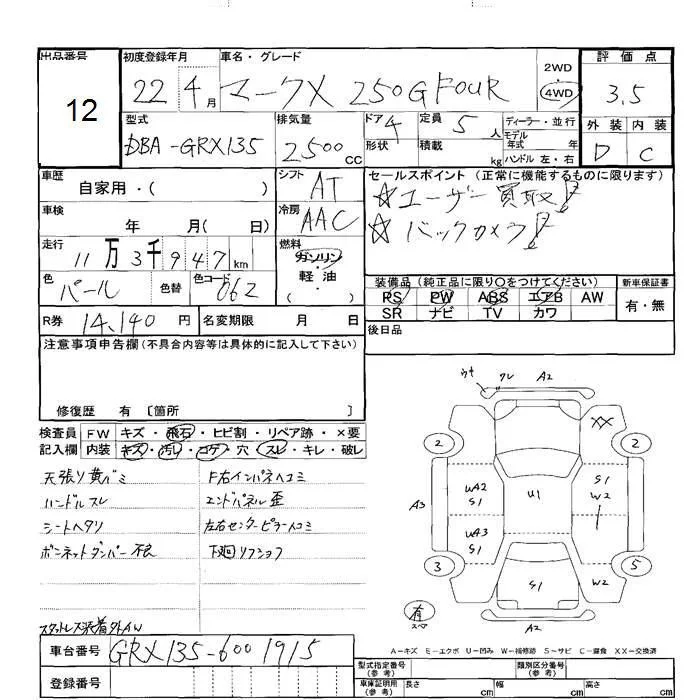 出品番号 初度登録年月 車名・グレード 評価点
12 22 4月 マークX 250G FOUR 2WD・4WD 3.5
型式 排気量 ドア 4 定員 5人 ディーラー・並行 外装 内装
DBA-GRX135 2500cc 形状 積載 kg モデル年式 年 ハンドル 左・右 D C
車歴 自家用・( ) シフト AT セールスポイント (正常に機能するものに限ります)
☆ユーザー買取!!
車検 年 月( 日) 冷房 AAC ☆バックカメラ!!
走行 11万3千947km 燃料 ガソリン・軽油
色 パール 色替 色コード 062 装備品(純正品に限り○をつけてください) 新車保証書
PS PW ABS エアB AW 有・無
SR ナビ TV カワ
R券 14,140円 名変期限 月 日 後日品
注意事項申告欄(不具合内容等は具体的に記入して下さい)
修復歴 有〔箇所 〕
検査員 FW キズ・飛石・ヒビ割・リペア跡・×要
記入欄 内装 キズ・汚レ・コゲ・穴・スレ・キレ・破レ
天張り黄バミ F右インパネヘコミ
ハンドルスレ エンドパネル歪
シートヘタリ 左右センターピラー凹コミ
ボンネットダンパー不良 下廻リフショフ
スタットレス装着外AW
車台番号 GRX135-6001915
登録番号
ウキ クレ A2
XX
2 2
UA2 S1 U1 S1 W2
A3
UA3 S1
3 S1 W2 5
有 スペア A2
A-キズ E-エクボ U-凹み W-補修跡 S-サビ C-腐食 XX-交換済
型式指定番号(参考) 類別区分番号(参考)
車庫証明用(参考) 長さ cm 幅 cm 高さ cm